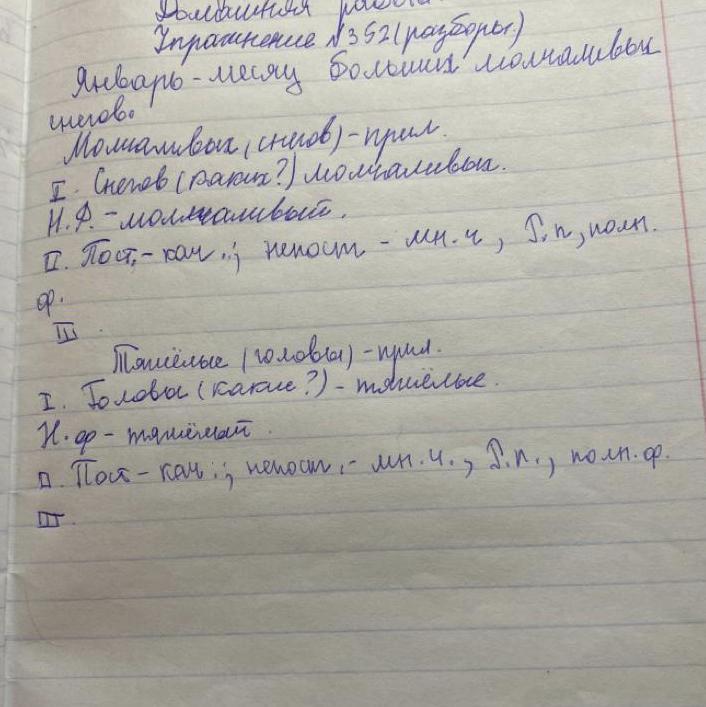 Домашняя работа
Упражнение №352(разборы.)
Январь - месяц больших молчаливых
снегов.
Молчаливых (снегов) - прил.
I. Снегов (каких?) молчаливых.
Н.Ф. - молчаливый.
II. Пост. - кач.; непост - мн.ч, Р.п, полн.
ф.
III.
Тяжёлые (головы) - прил.
I. Головы (какие?) - тяжёлые.
Н.ф - тяжёлый.
II. Пост - кач.; непост. - мн.ч., Р.п., полн.ф.
III.